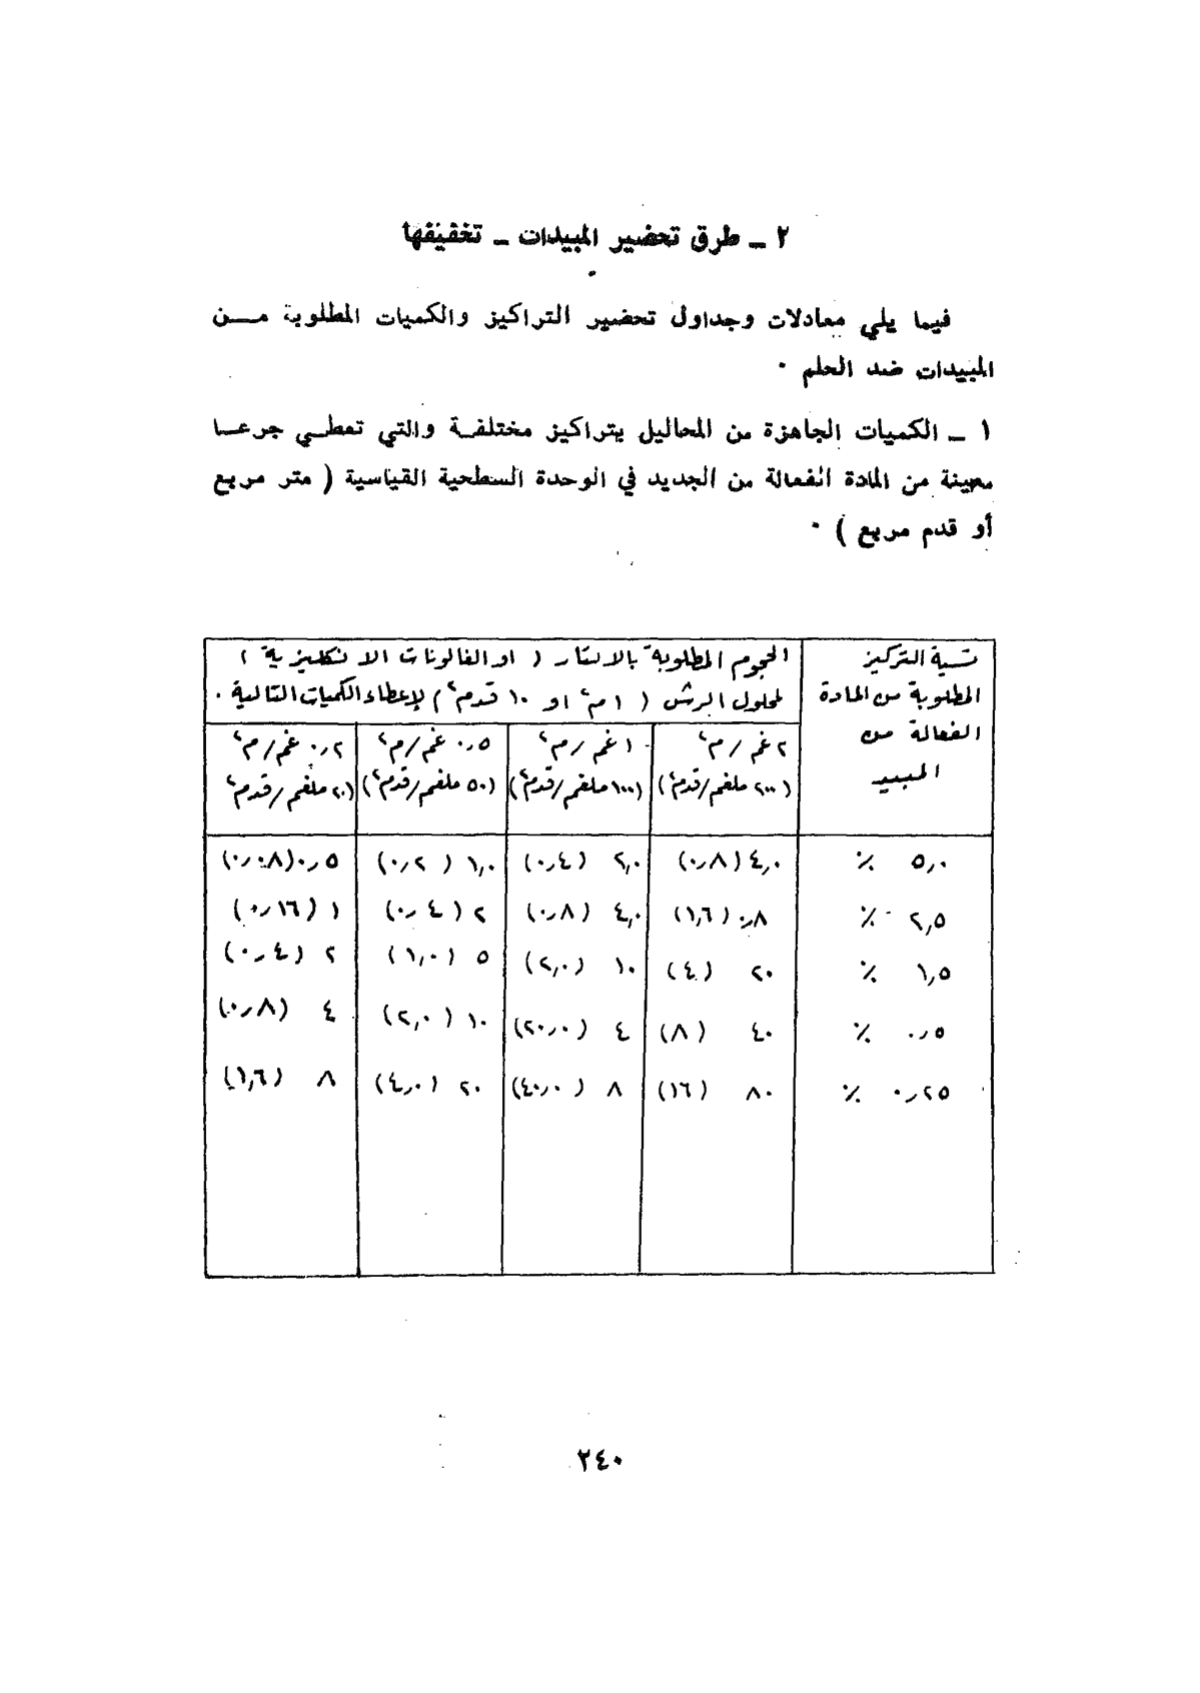 ٢ ــ طرق تحضير المبيدات ــ تخفيفها
فيما يلي معادلات وجداول تحضير التراكيز والكميات المطلوبة مــن
المبيدات ضد الحلم ٠
١ ــ الكميات الجاهزة من المحاليل بتراكيز مختلفة والتي تعطي جرعــا
معينة من المادة الفعالة من الجديد في الوحدة السطحية القياسية ( متر مربع
أو قدم مربع ) ٠
نسبة التركيز المطلوبة من المادة الفعالة من المبيد
الحجوم المطلوبة بالالتار ( او الغالونات الانكليزية )
لمحلول الرش ( ١م٢ او ١٠ قدم٢ ) لإعطاء الكميات التالية .
٢ غم / م٢ ١ غم / م٢ ٠,٥ غم/م٢ ٠,٢ غم/م٢
(٢٠٠ ملغم/قدم٢) (١٠٠ ملغم/قدم٢) (٥٠ ملغم/قدم٢) (٢٠ ملغم/قدم٢)
٥,٠ ٪ ٤,٠ (٠,٨) ٢,٠ (٠,٤) ١,٠ (٠,٢) ٠,٥ (٠,٠٨)
٢,٥ ٪ ٨,٠ (١,٦) ٤,٠ (٠,٨) ٢ (٠,٤) ١ (٠,١٦)
١,٥ ٪ ٢٠ (٤) ١٠ (٢,٠) ٥ (١,٠) ٢ (٠,٤)
٠,٥ ٪ ٤٠ (٨) ٤ (٢٠,٠) ١٠ (٢,٠) ٤ (٠,٨)
٠,٢٥ ٪ ٨٠ (١٦) ٨ (٤٠,٠) ٢٠ (٤,٠) ٨ (١,٦)
٢٤٠